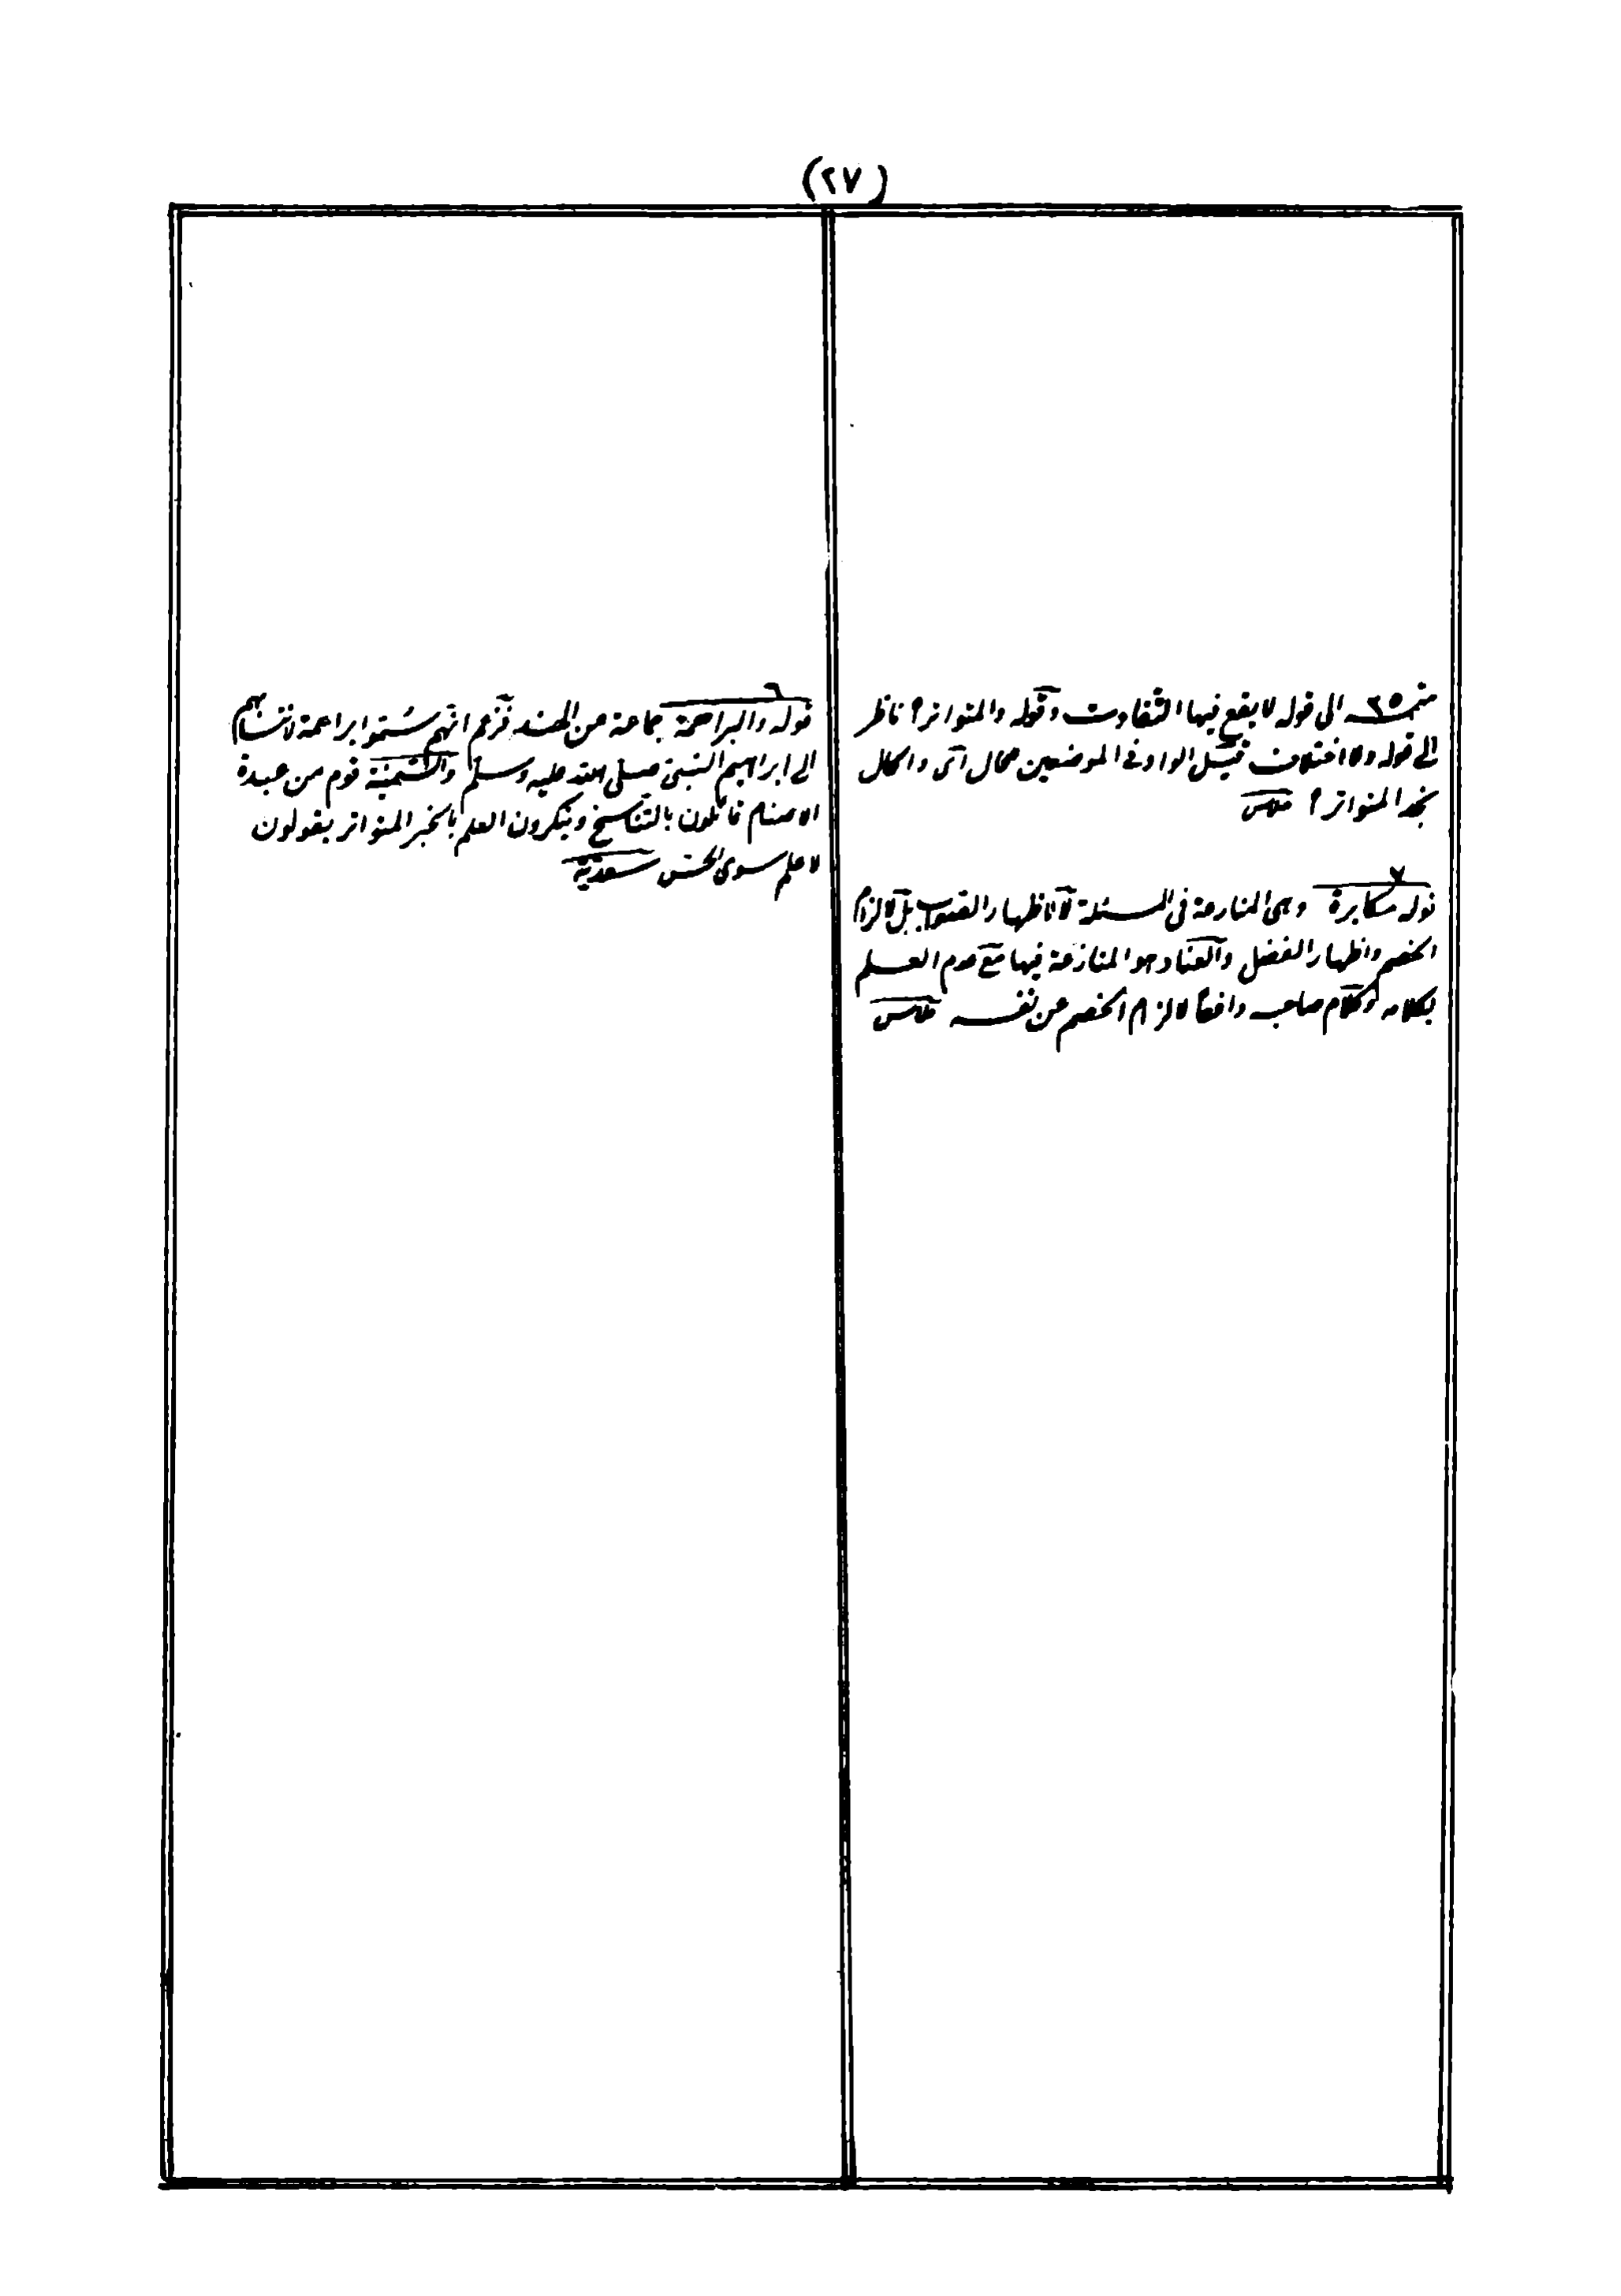 (٢٧)
الى قوله لا يقع فيها التفاوت وقوله والمتواترا ناظر
الى قوله ولا اختلاف قيل الواو فى الموضعين
المتواترا
٧
قوله مكابرة وهى المنازعة فى المسئلة لا لاظهار الصواب بل لالزام
الخصم واظهار الفضل والعناد هو المنازعة فيها مع عدم العلم
بكلامه وكلام صاحبه دافعا لالزام الخصم عن نفسه
٦
قوله والبراهمة جماعة من الهند تزعم انهم سُمّوا براهمة لانتسابهم
الى ابراهيم النبىّ صلى الله عليه وسلم والسُّمَنيّة قوم من عبدة
الاصنام قائلون بالتناسخ وينكرون العلم بالخبر المتواتر يقولون
لا علم سوى الحسّ سعدية